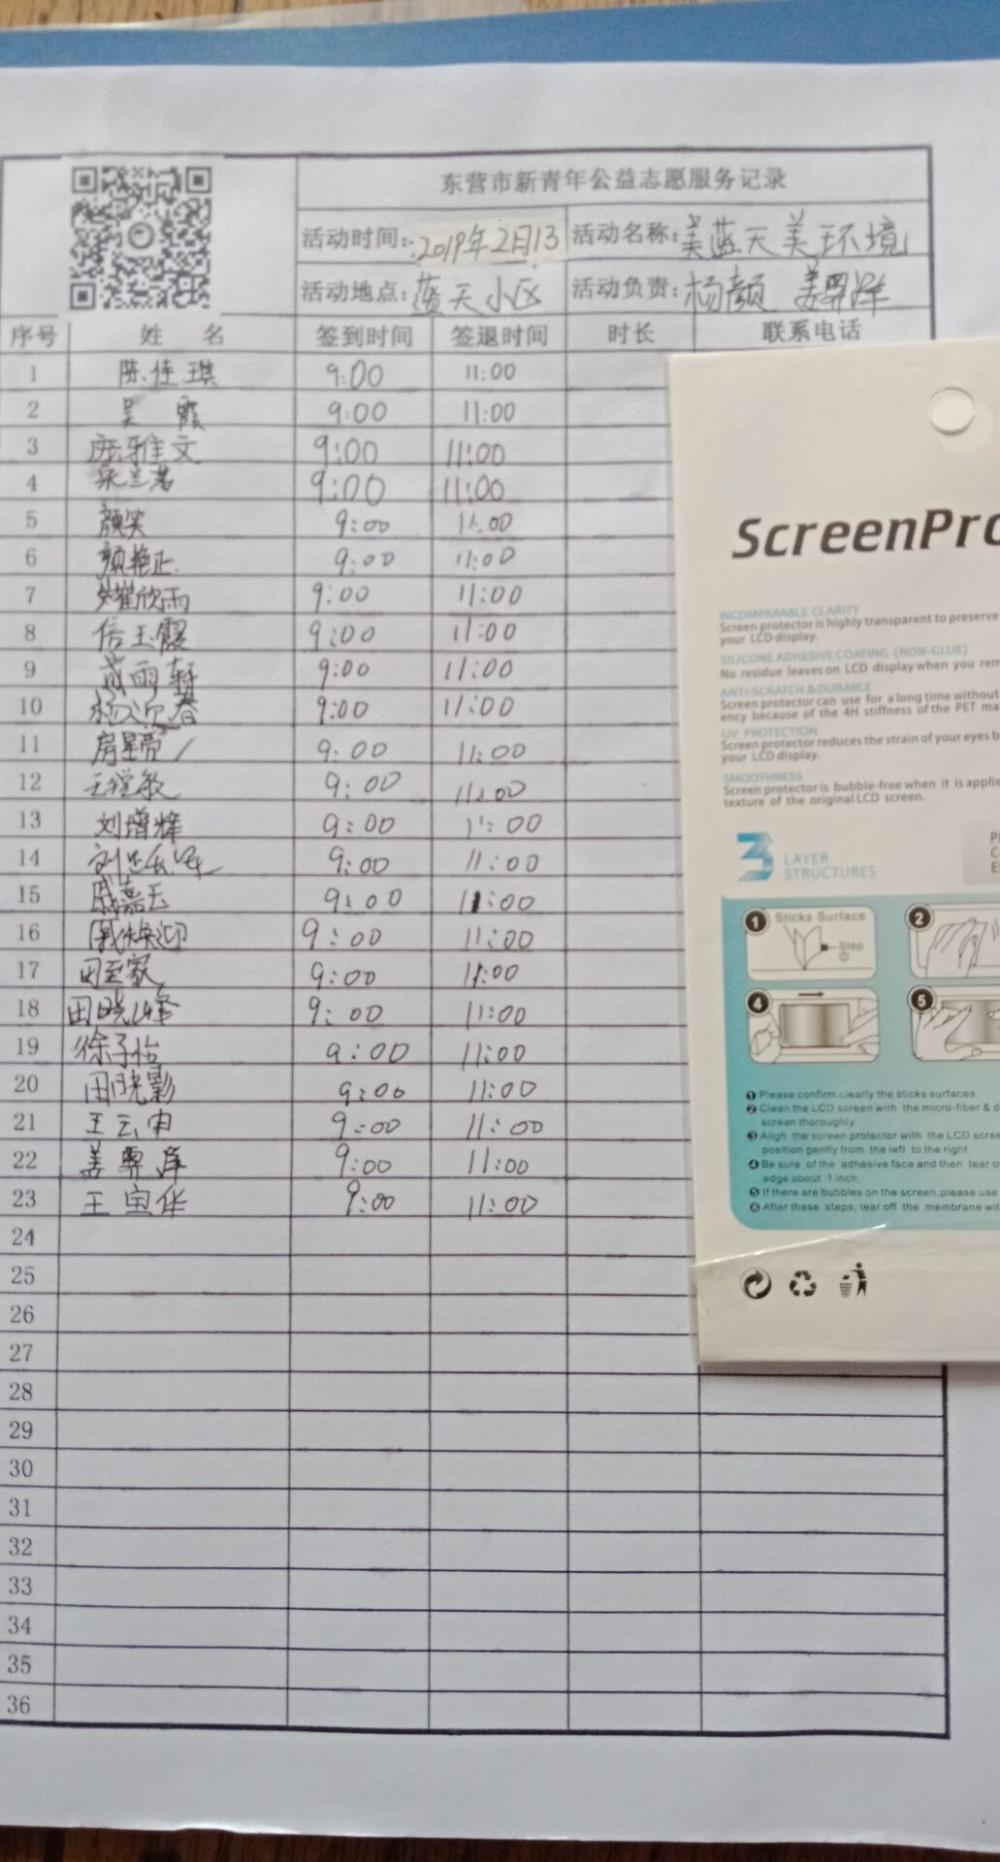 东营市新青年公益志愿服务记录
活动时间: 2019年2月13 活动名称: 美蓝天美环境
活动地点: 蓝天小区 活动负责: 杨颜 姜霁泽
序号 姓 名 签到时间 签退时间 时长 联系电话
1 陈佳琪 9:00 11:00
2 吴 霞 9:00 11:00
3 庞雅文 9:00 11:00
4 9:00 11:00
5 颜笑 9:00 11:00
6 颜艳正 9:00 11:00
7 欣雨 9:00 11:00
8 信玉霞 9:00 11:00
9 雨轩 9:00 11:00
10 杨迎春 9:00 11:00
11 9:00 11:00
12 敏 9:00 11:00
13 刘增辉 9:00 11:00
14 9:00 11:00
15 嘉玉 9:00 11:00
16 9:00 11:00
17 田至家 9:00 11:00
18 田晓峰 9:00 11:00
19 徐子怡 9:00 11:00
20 田晓影 9:00 11:00
21 王云 9:00 11:00
22 姜霁泽 9:00 11:00
23 王宝华 9:00 11:00
24
25
26
27
28
29
30
31
32
33
34
35
36
ScreenPro
INCOMPARABLE CLARITY
Screen protector is highly transparent to preserve
your LCD display.
SILICONE ADHESIVE COATING (NON-GLUE)
No residue leaves on LCD display when you rem
ANTI-SCRATCH & DURABLE
Screen protector can use for a long time without
ency because of the 4H stiffness of the PET ma
UV PROTECTION
Screen protector reduces the strain of your eyes b
your LCD display.
SMOOTHNESS
Screen protector is bubble-free when it is applie
texture of the original LCD screen.
3 LAYER
STRUCTURES
1 Sticks Surface 2
Step
4 5
1 Please confirm clearly the sticks surfaces.
2 Clean the LCD screen with the micro-fiber & d
screan thoroughly.
3 Aligh the screen protector with the LCD scree
position gently from the left to the right.
4 Be sure of the adhesive face and then tear o
edge about 1 inch.
5 If there are bubbles on the screen, please use
6 After these steps, tear off the membrane wit